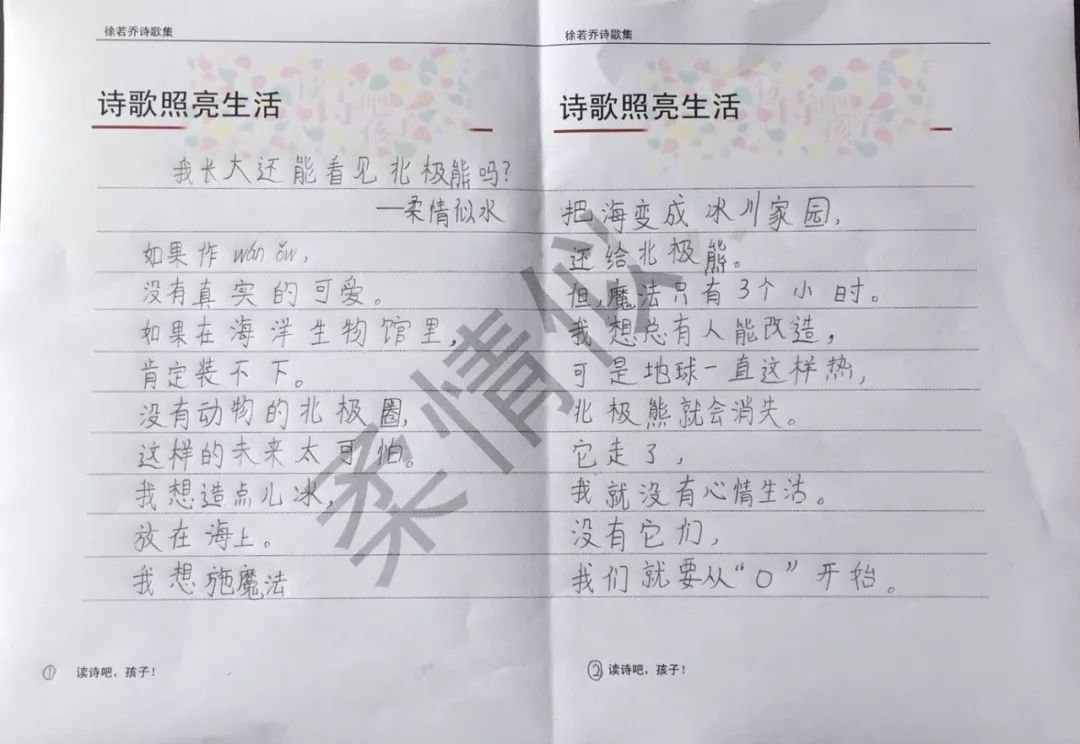 徐若乔诗歌集
诗歌照亮生活
我长大还能看见北极熊吗?
—柔情似水
如果作wán ǒu,
没有真实的可爱。
如果在海洋生物馆里,
肯定装不下。
没有动物的北极圈,
这样的未来太可怕。
我想造点儿冰,
放在海上。
我想施魔法
① 读诗吧,孩子!
徐若乔诗歌集
诗歌照亮生活
把海变成冰川家园,
还给北极熊。
但,魔法只有3个小时。
我想总有人能改造,
可是地球一直这样热,
北极熊就会消失。
它走了,
我就没有心情生活。
没有它们,
我们就要从“0”开始。
② 读诗吧,孩子!
柔情似